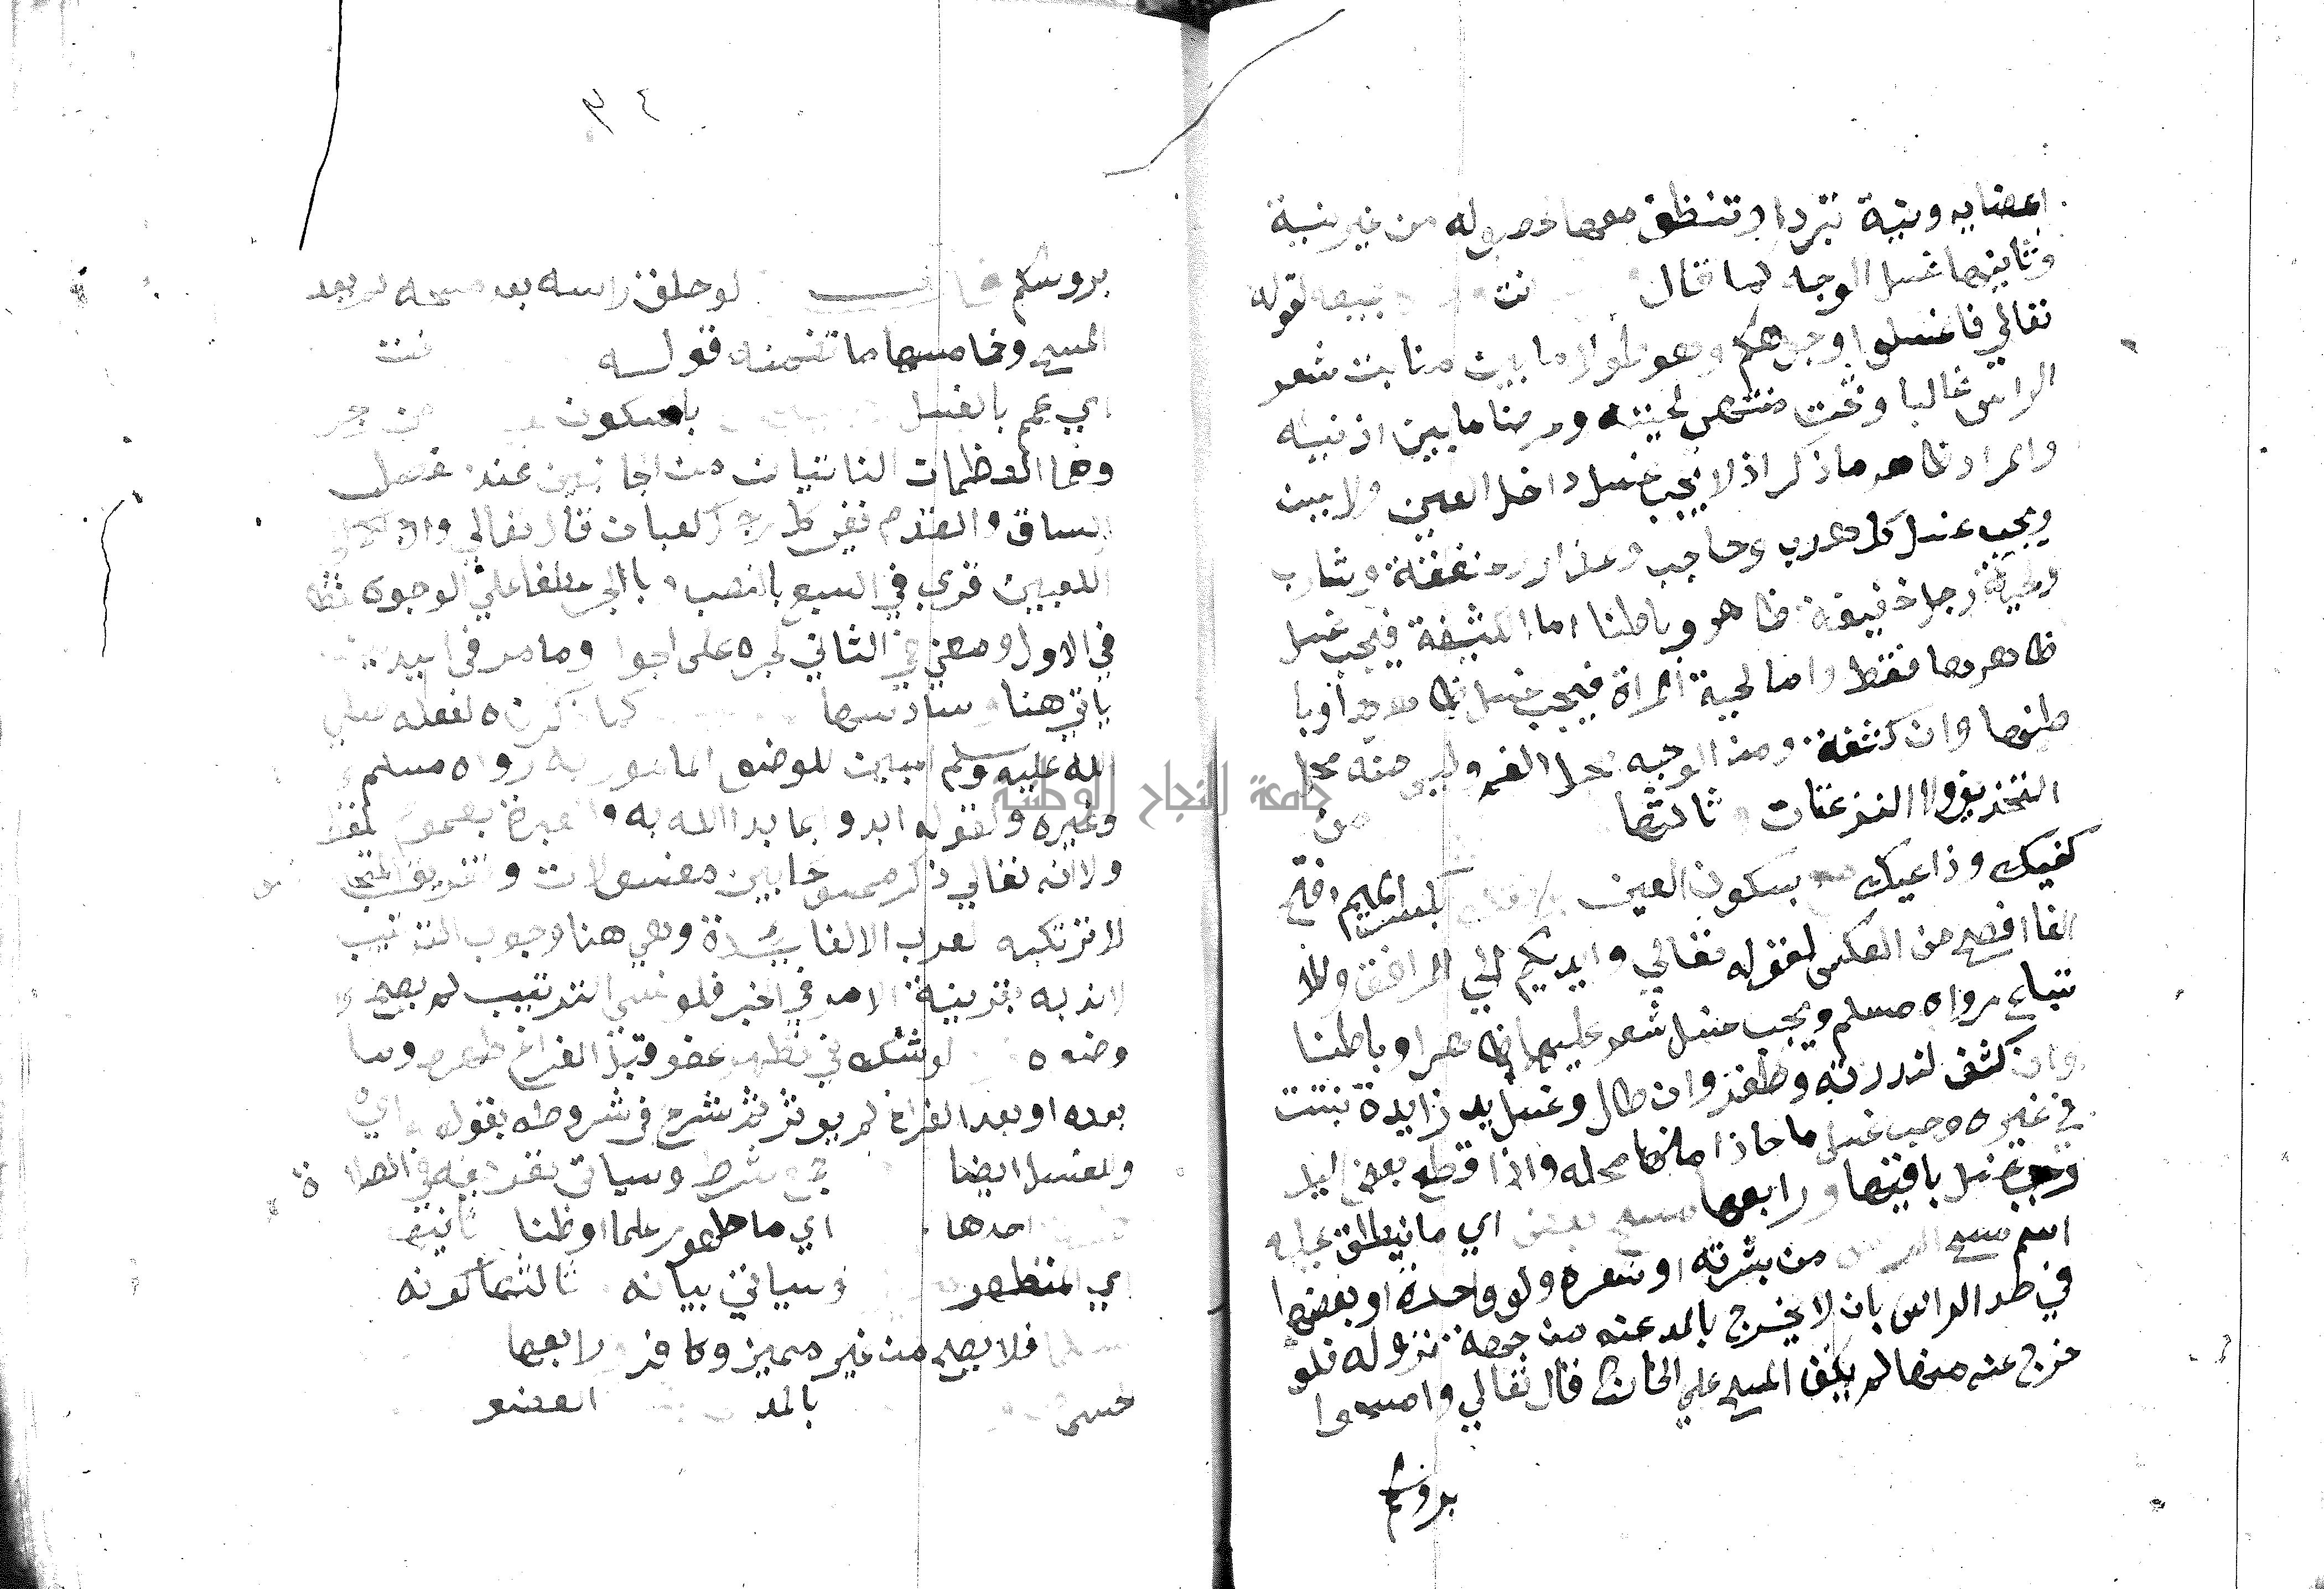 اعضايه ونية تبردا وتنظف معها لحصوله من غير نية
وثانيها غسل الوجه لما قال نت لقوله
تعالي فاغسلوا وجوهكم وهو طولا ما بين منابت شعر
الراس غالبا وتحت منتهى لحيته وعرضا ما بين اذنيه
والمراد ظاهر ما ذكر اذ لا يجب غسل داخل العين ولا يسن
ويجب غسل كل هدب وحاجب وعذار وعنفقة وشارب
ولحية رجل خفيفة ظاهرا وباطنا اما الكثيفة فيجب غسل
ظاهرها فقط واما لحية المراة فيجب غسل ظاهرها وبا
طنها وان كثفة ومن الوجه محل الغم وليس منه محل
التحذيف ولا النزعتان وثالثها من
كفيك وذراعيك مع بسكون العين بكسر الميم وفتح
الفا افصح من العكس لقوله تعالي وايديكم الي المرافق وللا
تباع رواه مسلم ويجب غسل شعر عليهما ظاهرا وباطنا
وان كثف لندرته وظفر وان طال وغسل يد زايدة نبتت
في غيره وجب غسل ما حاذا منها محله واذا قطع بعض اليد
وجب غسل باقيها ورابعها مسح بعض اي ما ينطلق عليه
اسم مسح الراس من بشرته او شعره ولو واحدة او بعضها
في حد الراس بان لا يخرج بالمد عنه من جهة نزوله فلو
خرج عنه منها لم يكف المسح علي الخارج قال تعالي وامسحوا
بروسكم
٣٤
بروسكم لو حلق راسه بعد مسحه لم يعد
المسح وخامسها ما تضمنه قوله نت
اي عم بالغسل باسكون من جر
وهما العظمات الناتيان من الجانبين عند مفصل
الساق والقدم ففي كل رجل كعبان قال تعالي وارجلكم الي
الكعبين قري في السبع بالنصب وبالجر عطفا علي الوجوه لفظا
في الاول ومعني في الثاني لجره علي الجوار وما مر في اليدين
ياتي هنا وسادسها كما ذكرناه لفعله صلي
الله عليه وسلم المبين للوضو المامور به رواه مسلم
وغيره ولقوله ابدوا بما بدا الله به والعبرة بعموم لفظ
ولانه تعالي ذكر ممسوحا بين مغسولات وتفريق المتجانس
لا ترتكبه العرب الا لفايدة وهي هنا وجوب الترتيب
لا ندبه بقرينة الامر في الخبر فلو نسي الترتيب لم يصح
وضوه لو شك في تطهير عضو قبل الفراغ طهره وما
بعده او بعد الفراغ لم يوثر ثم شرع في شروطه بقوله اي
وللغسل ايضا جمع شرط وسياتي تعريفه في الصلاة
احدها اي ما طهور علما او ظنا ثانيها
اي المتطهر وسياتي بيانه ثالثها كونه
فلا يصح من غير مميز وكافر رابعها
بالمد العضو
جامعة النجاح الوطنية